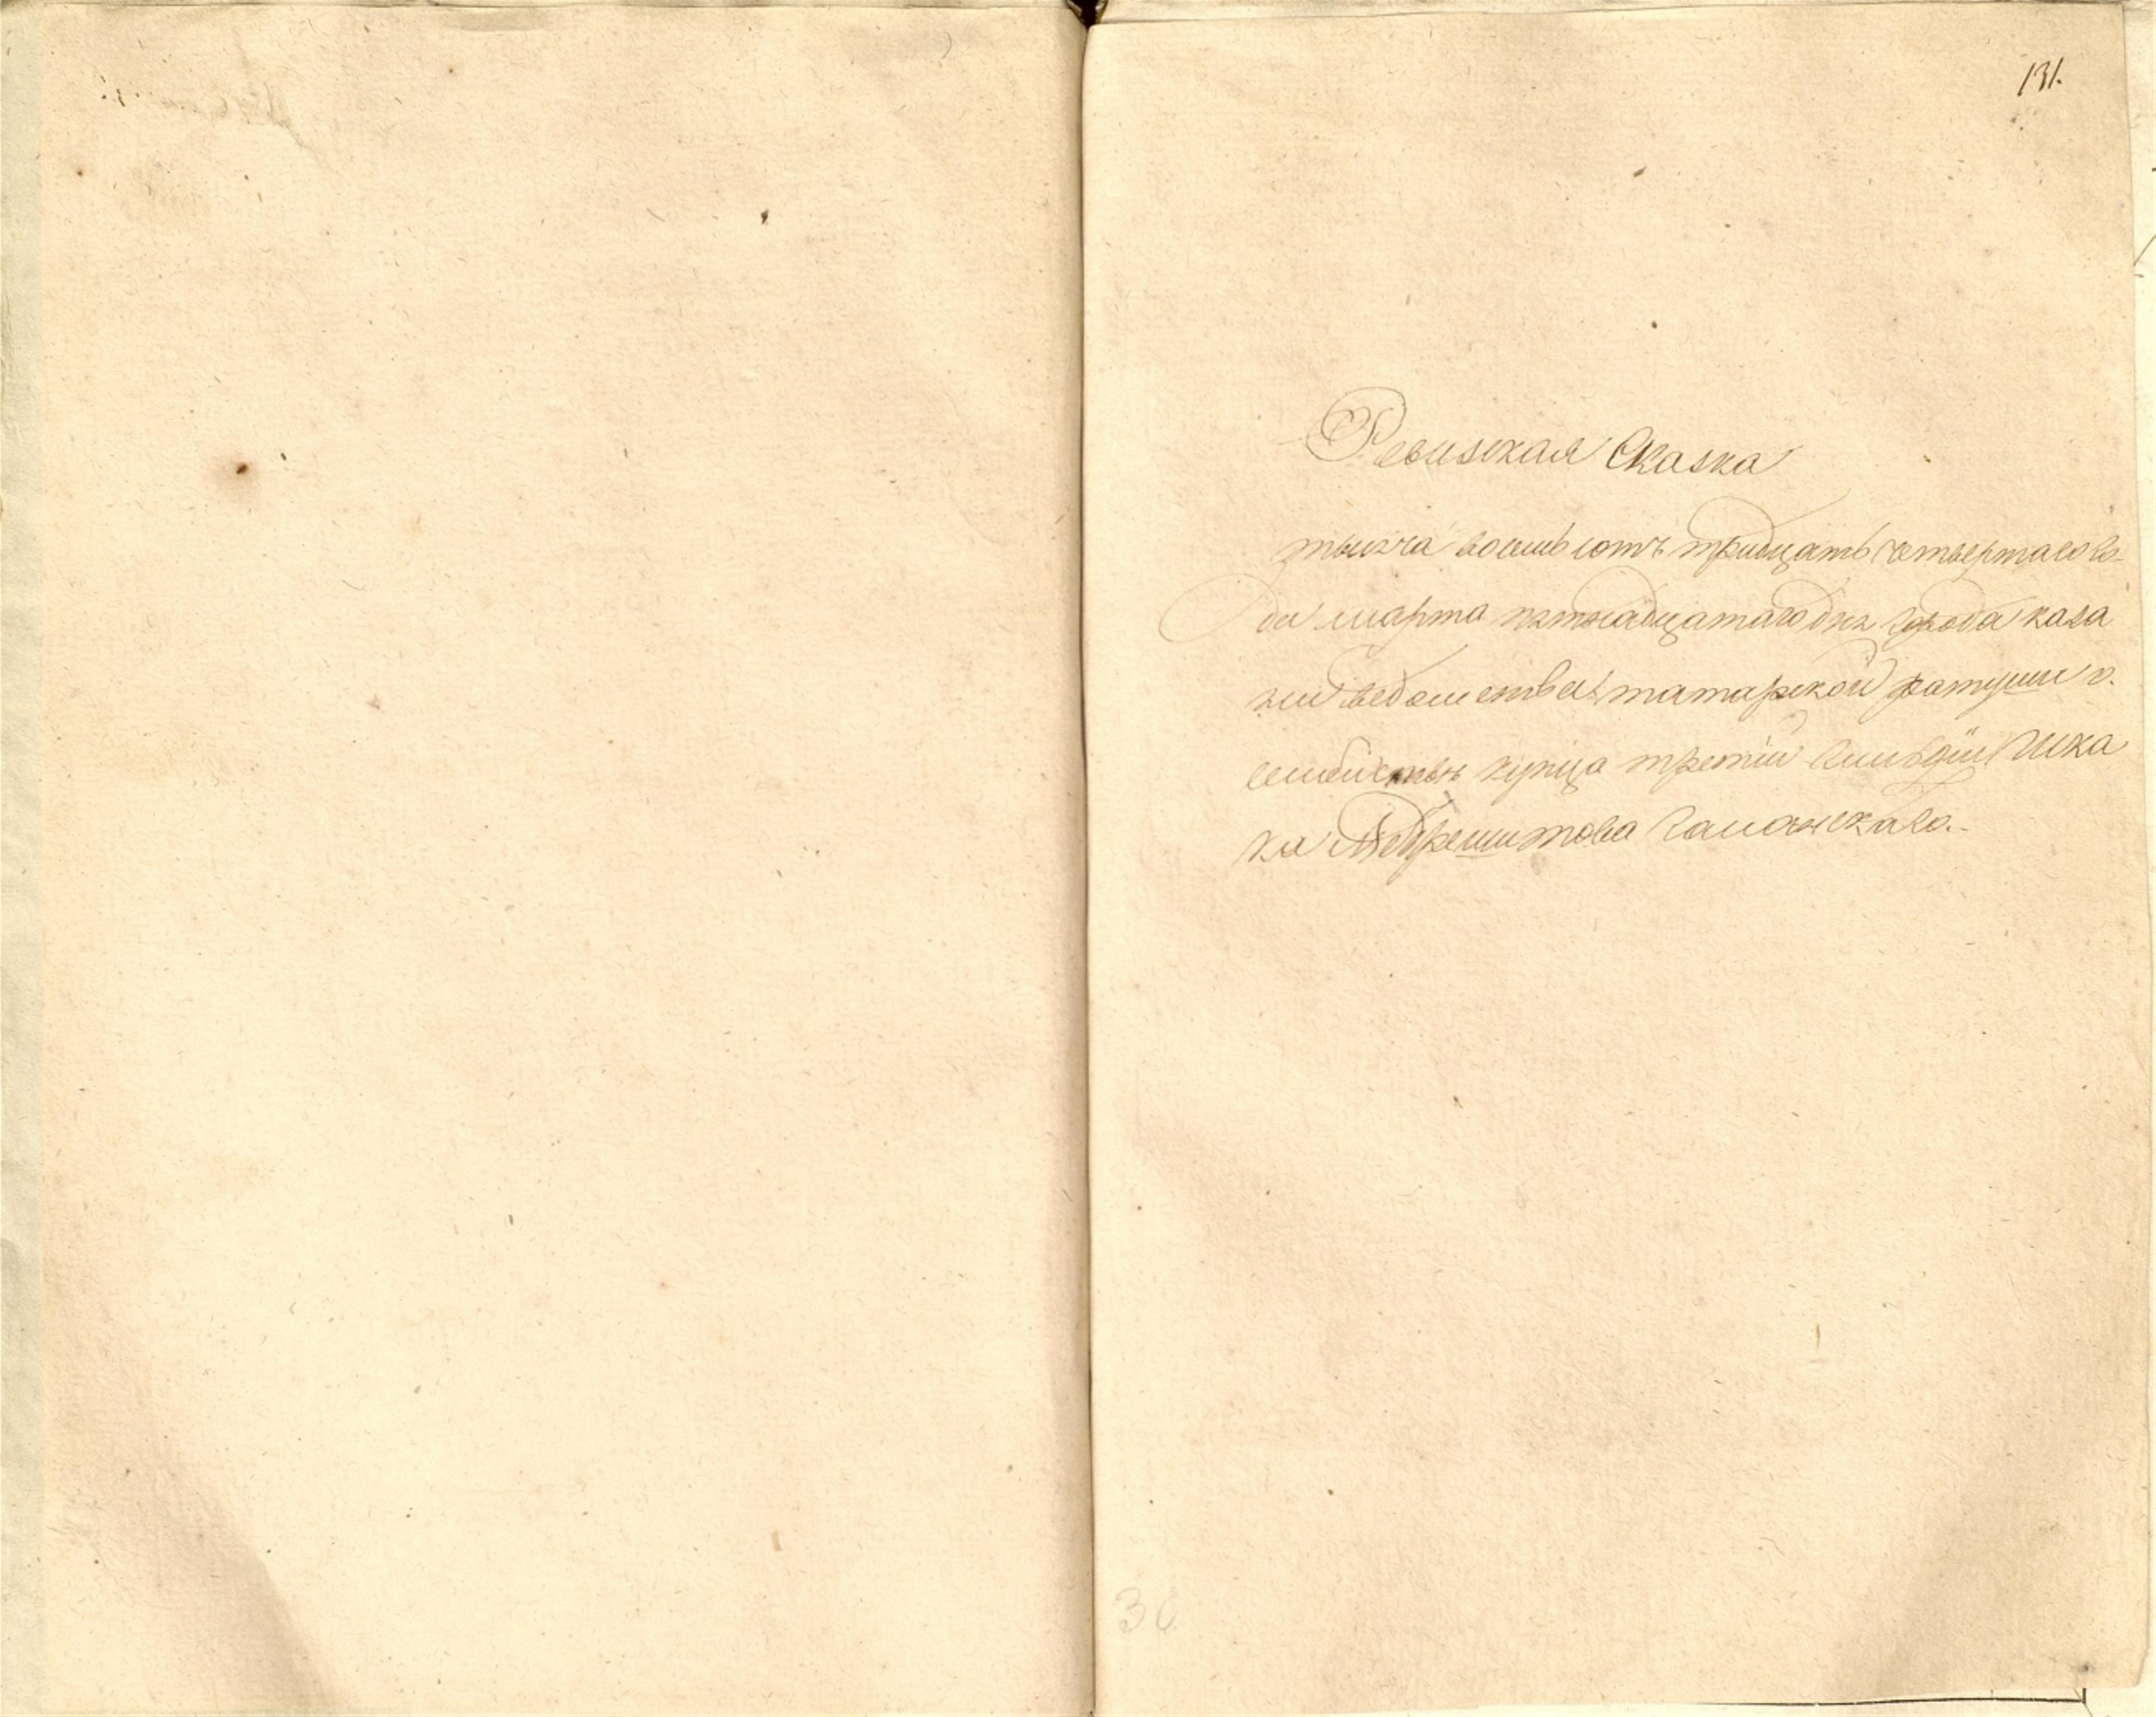 131.
Ревизская Сказка
тысяча восемь сотъ тридцать четвертаго го-
да марта пятнадцатаго дня города каза
ни ведомства татарской ратуши о.
семействѣ купца третій гильдіи Исха
ка Абдрешитова
3